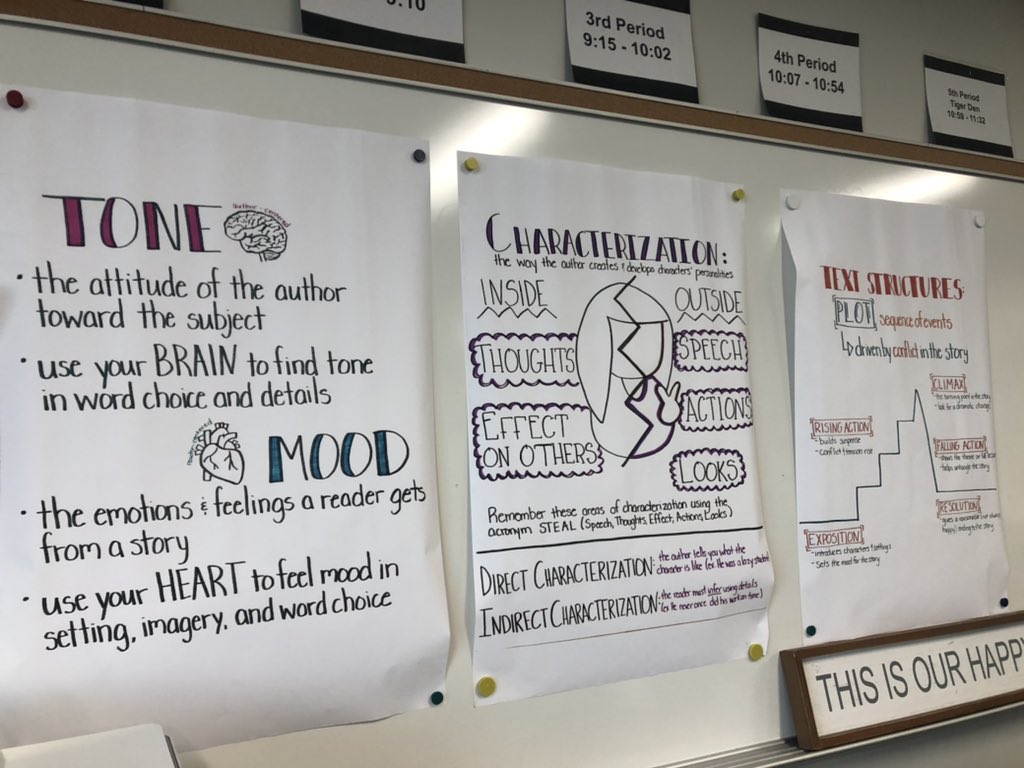 3rd Period
9:15 - 10:02
4th Period
10:07 - 10:54
5th Period
Tiger Den
10:59 - 11:32
TONE
author-centered
· the attitude of the author
toward the subject
· use your BRAIN to find tone
in word choice and details
MOOD
· the emotions & feelings a reader gets
from a story
· use your HEART to feel mood in
setting, imagery, and word choice
CHARACTERIZATION:
the way the author creates & develops characters' personalities
INSIDE
OUTSIDE
THOUGHTS
SPEECH
EFFECT
ON OTHERS
ACTIONS
LOOKS
Remember these areas of characterization using the
acronym STEAL (Speech, Thoughts, Effect, Actions, Looks)
DIRECT CHARACTERIZATION: the author tells you what the
character is like (ex. He was a lazy student
INDIRECT CHARACTERIZATION: the reader must infer using details
(ex. He never once did his work on time)
TEXT STRUCTURES:
PLOT: sequence of events
↳ driven by conflict in the story
CLIMAX
- the turning point in the story
- look for a dramatic change
RISING ACTION
- builds suspense
- conflict & tension rise
FALLING ACTION
- shows the theme or life lesson
- helps untangle the story
RESOLUTION
- gives a reasonable (not always
happy) ending to the story
EXPOSITION
- introduces characters & settings
- sets the mood for the story
THIS IS OUR HAPPY